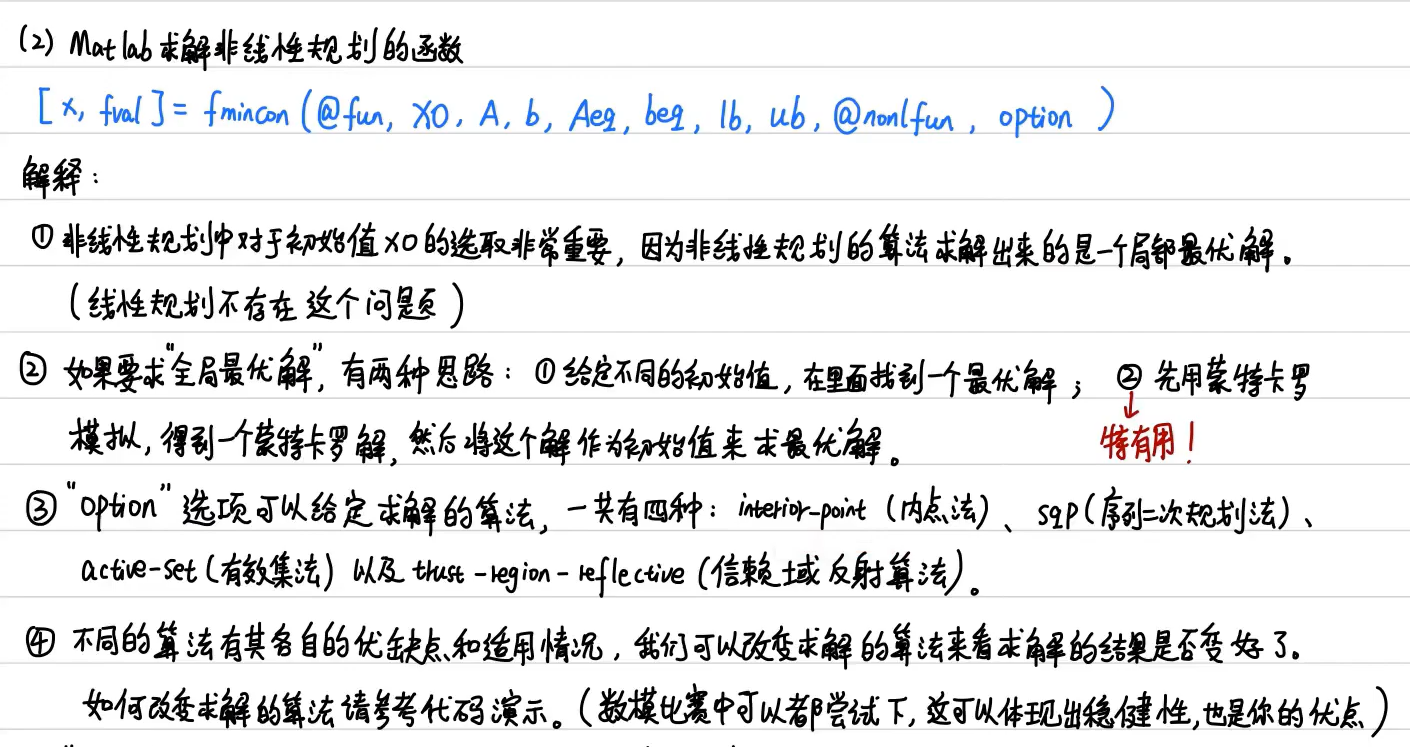 (2) Matlab求解非线性规划的函数
[x, fval] = fmincon(@fun, X0, A, b, Aeq, beq, lb, ub, @nonlfun, option)
解释:
① 非线性规划中对于初始值X0的选取非常重要, 因为非线性规划的算法求解出来的是一个局部最优解。
(线性规划不存在这个问题)
② 如果要求“全局最优解”, 有两种思路: ① 给定不同的初始值, 在里面找到一个最优解; ② 先用蒙特卡罗
模拟, 得到一个蒙特卡罗解, 然后将这个解作为初始值来求最优解。 特有用!
③ “option”选项可以给定求解的算法, 一共有四种: interior-point (内点法)、sqp(序列二次规划法)、
active-set (有效集法) 以及 trust-region-reflective (信赖域反射算法)。
④ 不同的算法有其各自的优缺点和适用情况, 我们可以改变求解的算法来看求解的结果是否变好了。
如何改变求解的算法请参考代码演示。(数模比赛中可以都尝试下, 这可以体现出稳健性, 也是你的优点)